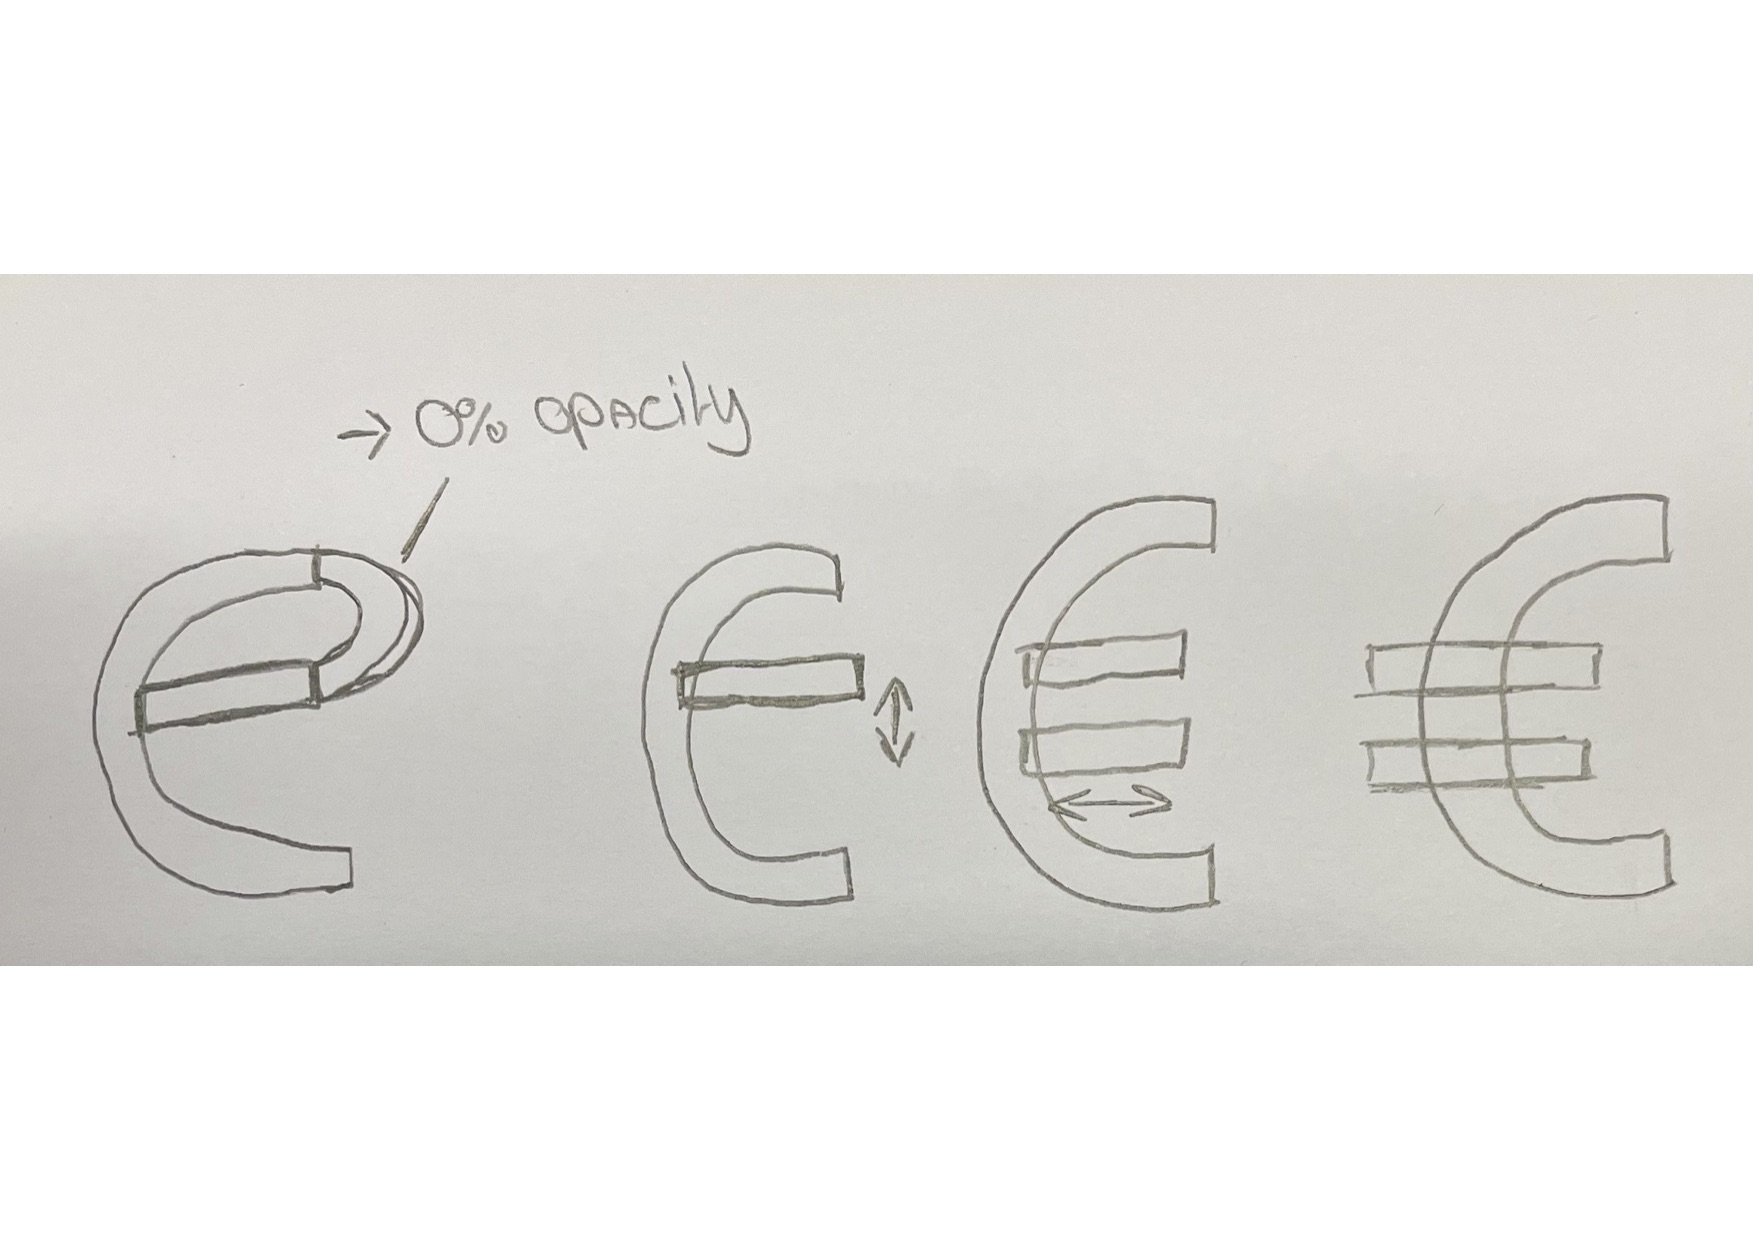 → 0% opacity
e € € €